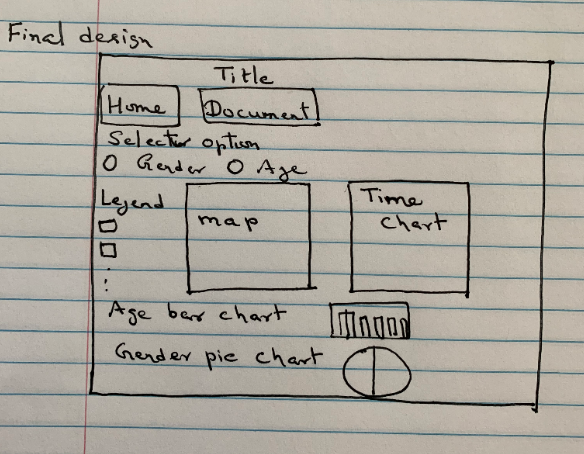 Final design
Title
Home Document
Selector option
Gender Age
Legend
map
Time
chart
Age bar chart
Gender pie chart